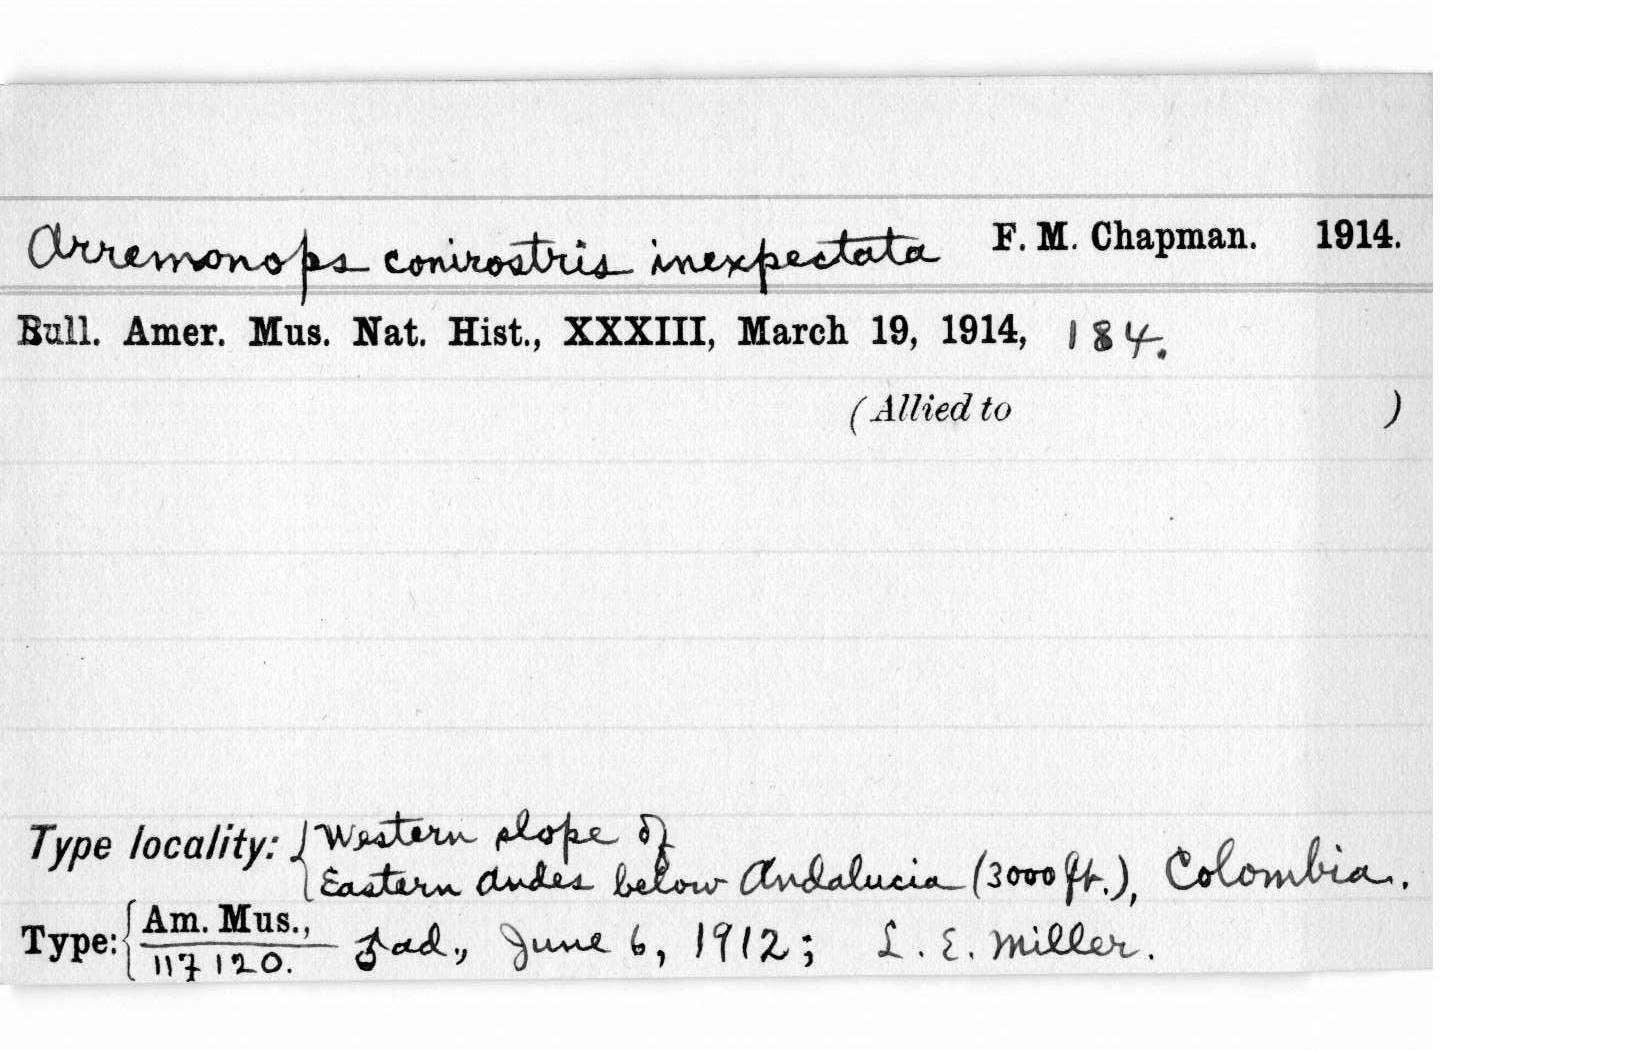 Arremonops conirostris inexpectata F. M. Chapman. 1914.
Bull. Amer. Mus. Nat. Hist., XXXIII, March 19, 1914, 184.
(Allied to )
Type locality: { Western slope of
Eastern Andes below Andalucia (3000 ft.), Colombia.
Type: { Am. Mus.,
117120. ad., June 6, 1912; L. E. Miller.